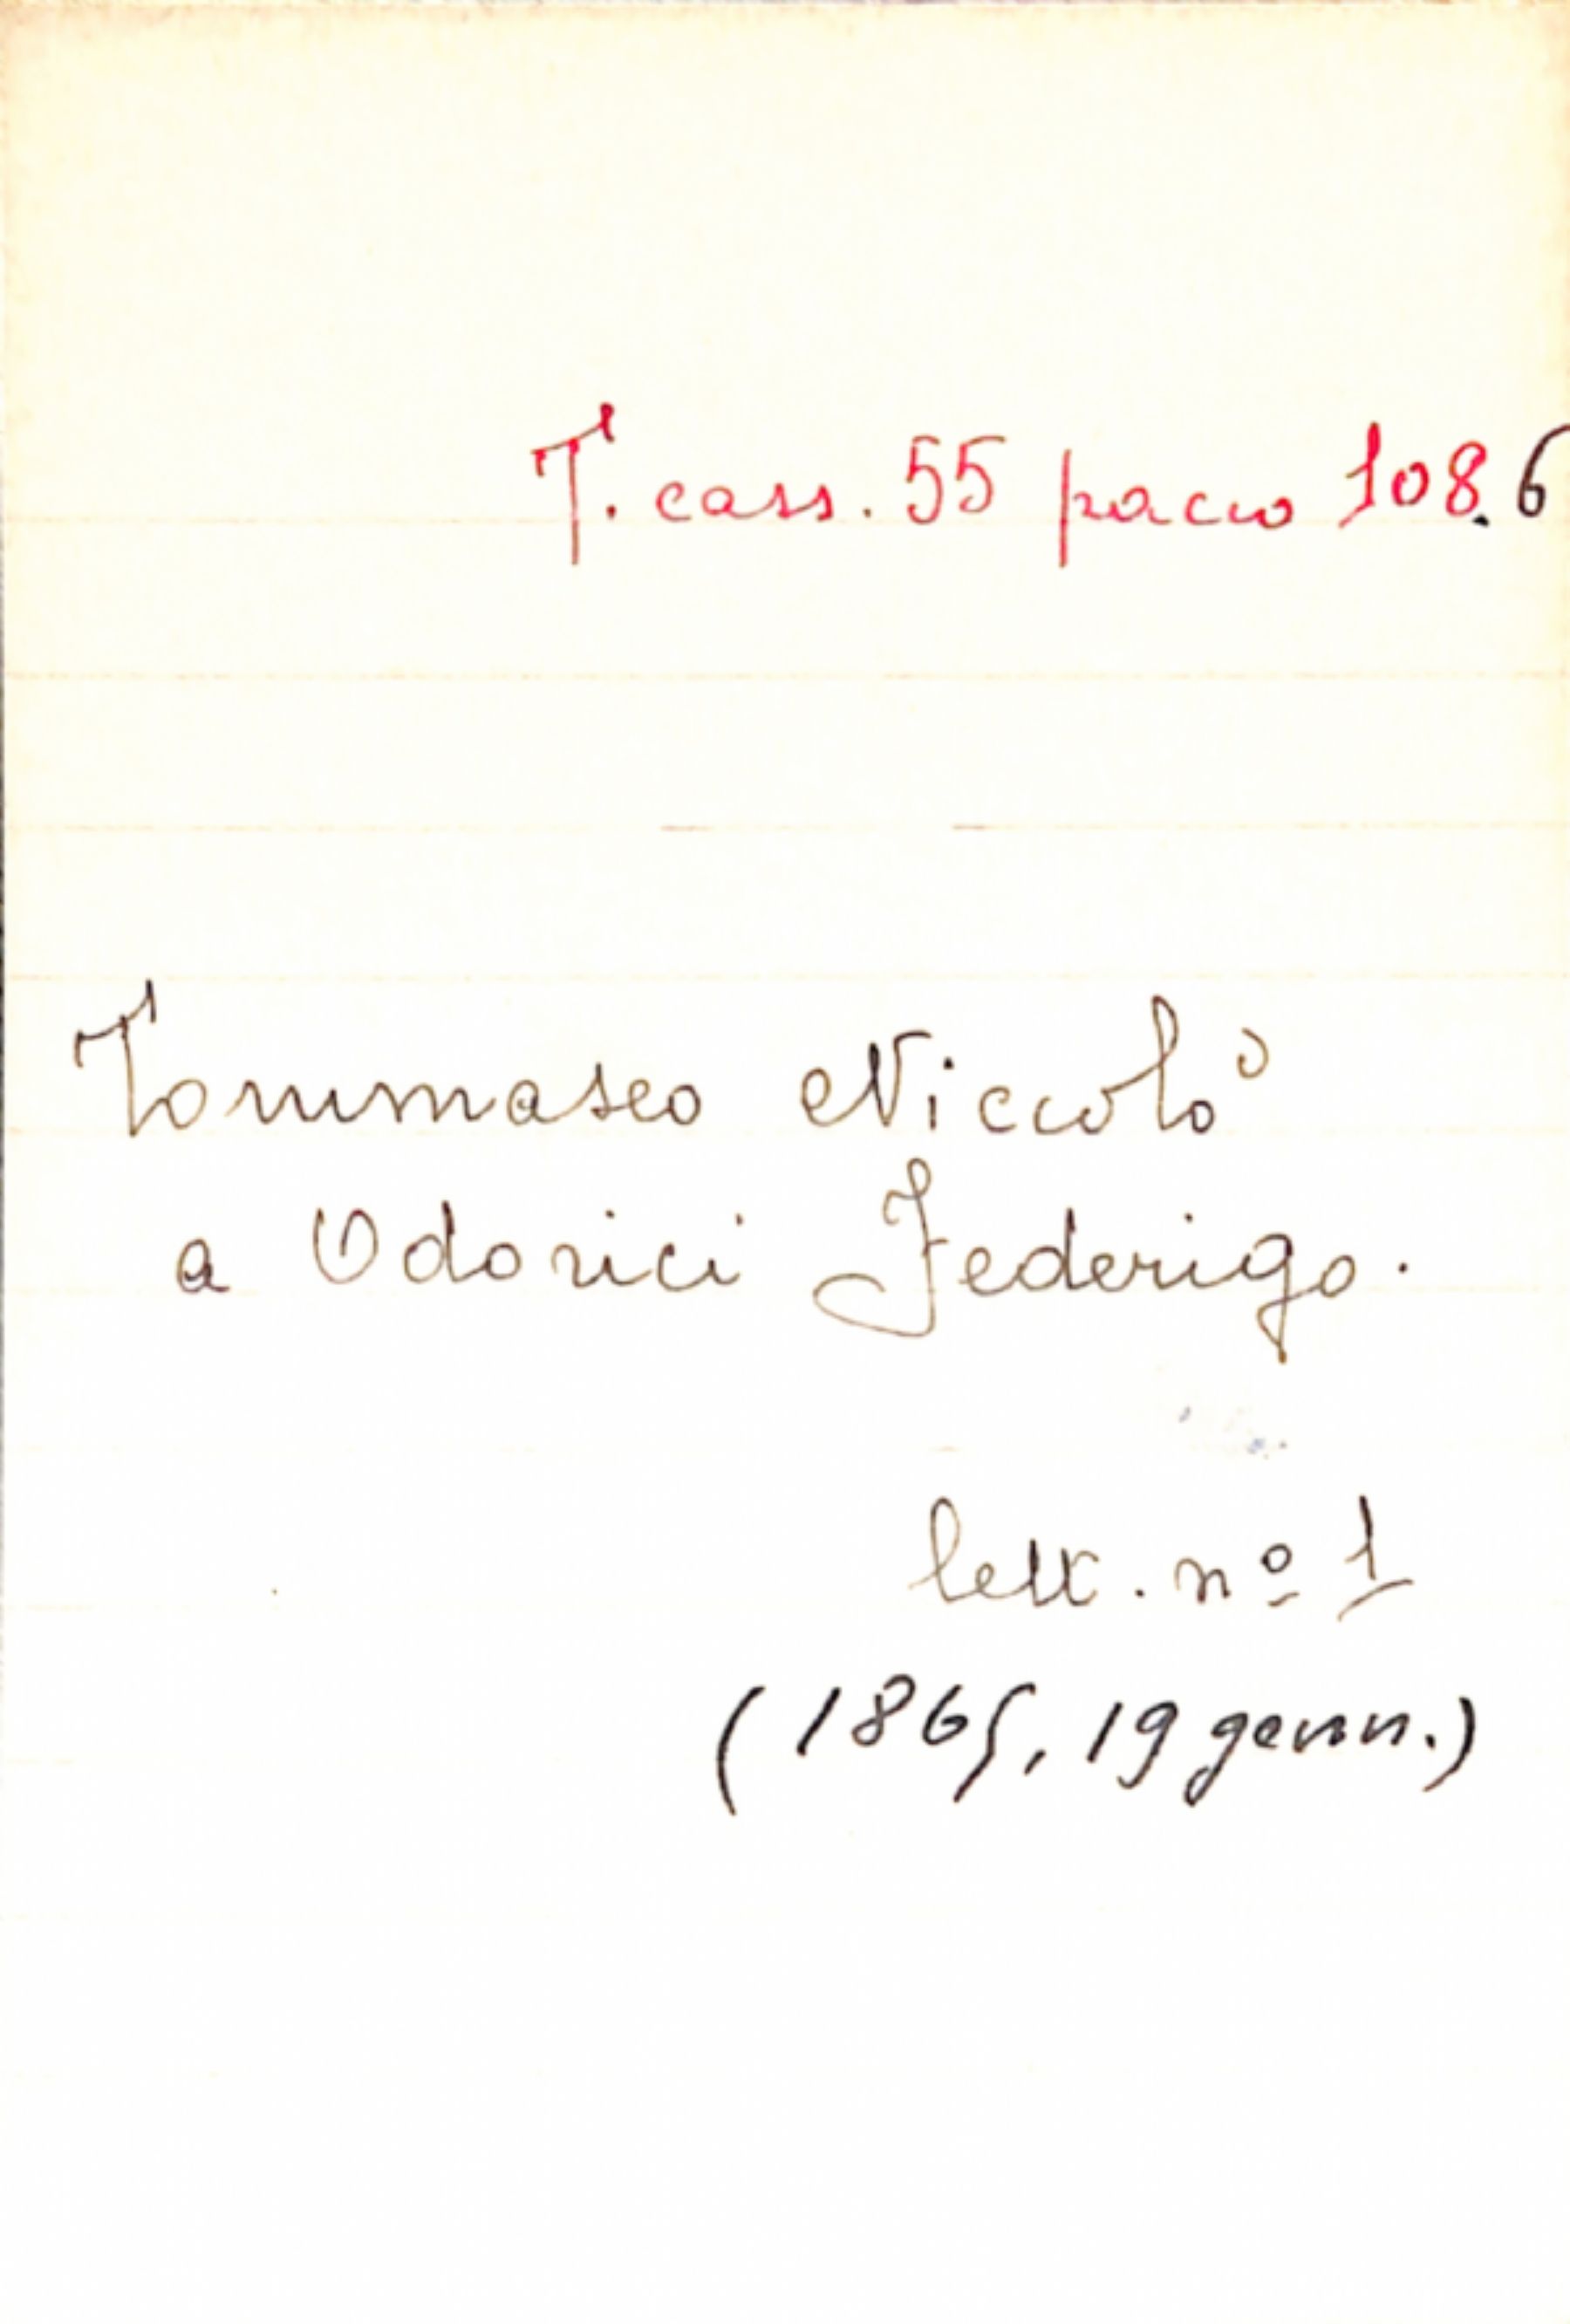 T. cass. 55 pacco 108.6
Tommaseo Niccolò
a Odorici Federigo.
lett. nº 1
(1865, 19 genn.)